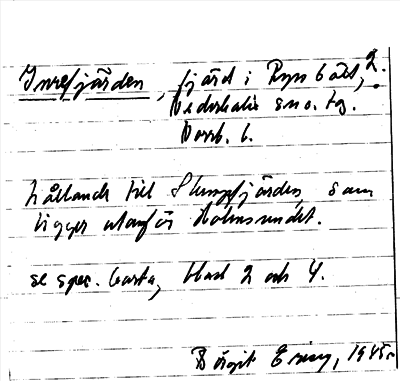 Inrefjärden, fjärd i Ryssbält, 2.
Nederkalix sn o. tg.
Norrb. l.
hållande till Stengsfjärden, som
ligger utanför Holmsundet.
se spec. karta, blad 2 och 4.
Birgit 1945